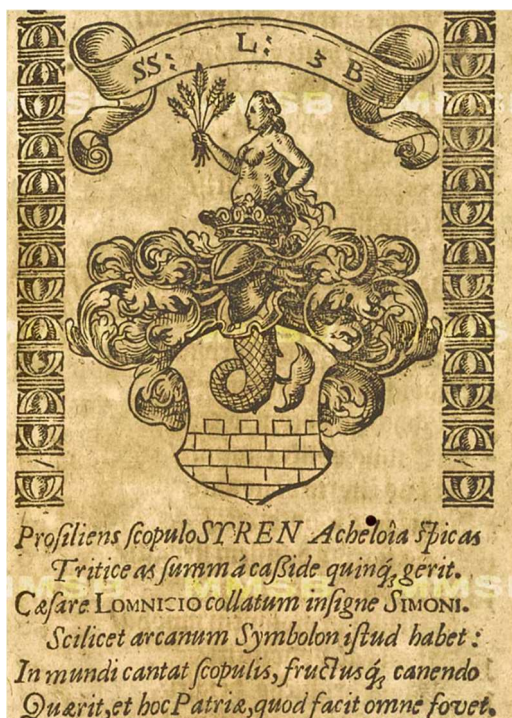 SS: L: 3 B
Proſiliens ſcopulo SYREN Acheloîa ſpicas
Triticeas ſummâ caſſide quinq́ꝫ gerit.
Cæſare LOMNICIO collatum inſigne SIMONI.
Scilicet arcanum Symbolon iſtud habet:
In mundi cantat ſcopulis, fructusq́ꝫ canendo
Quærit, et hoc Patriæ, quod facit omne fovet.